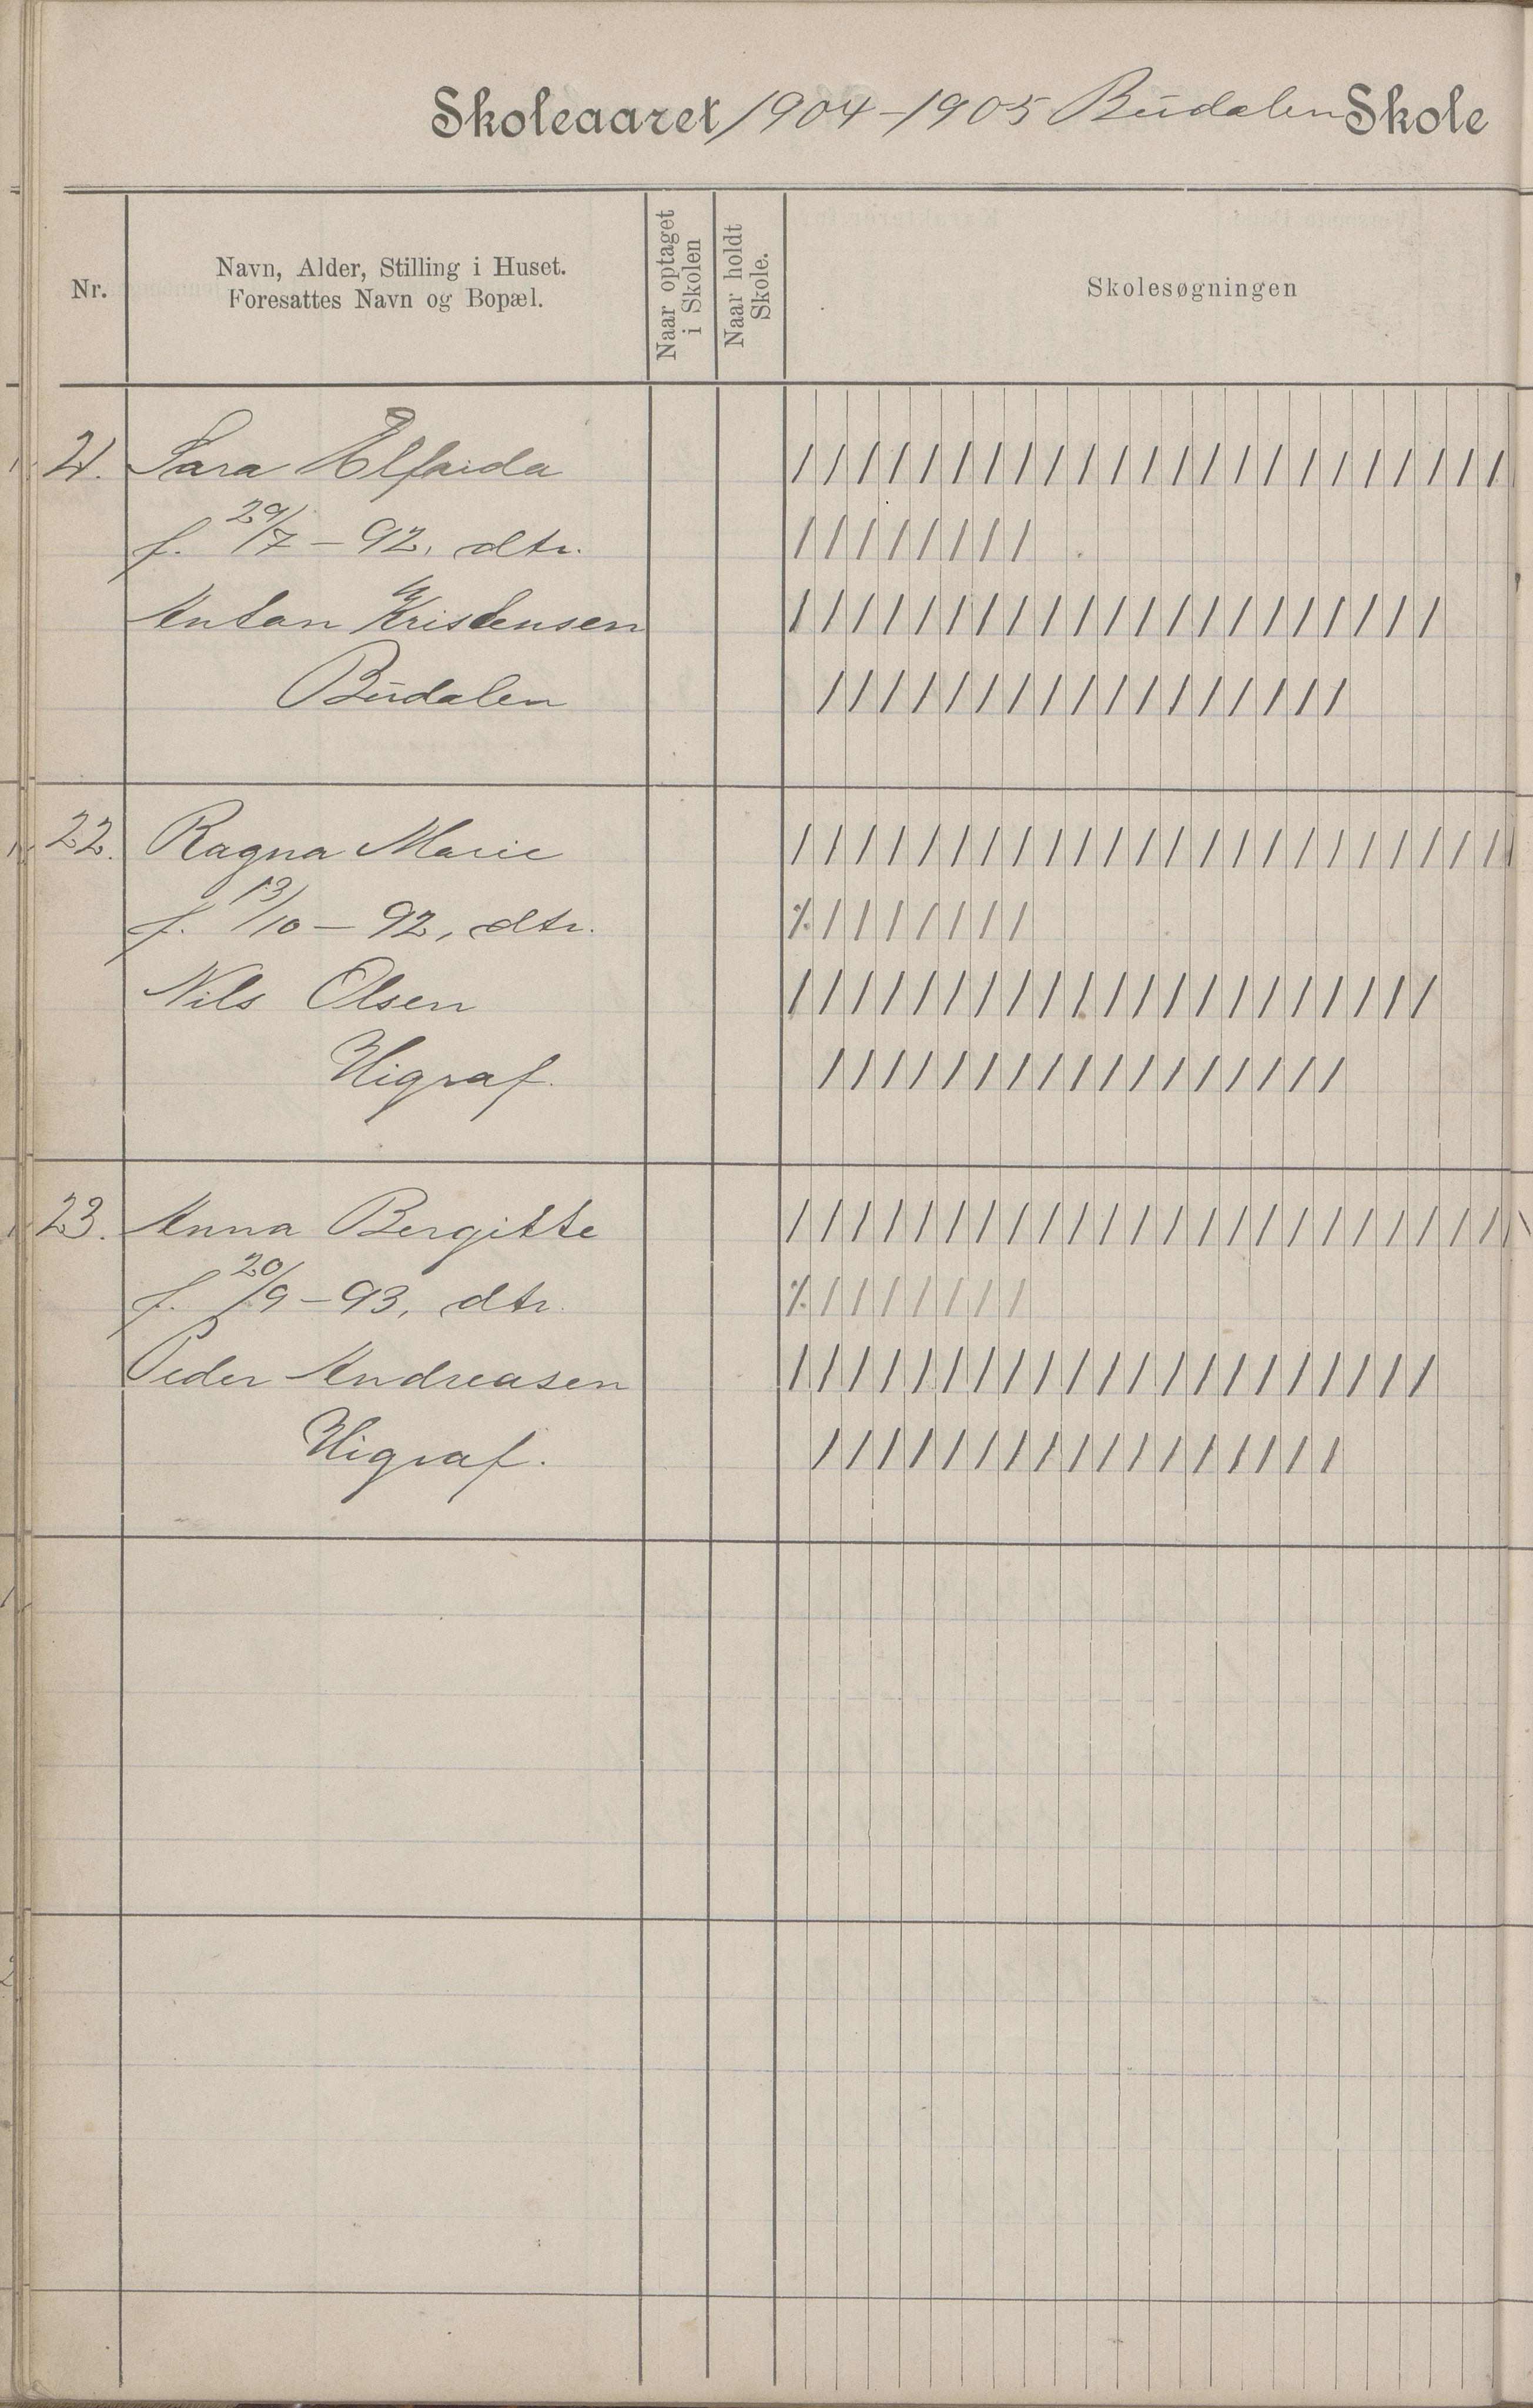 Skoleaaret 1904-1905 Budalen Skole
Nr.
Navn, Alder, Stilling i Huset.
Foresattes Navn og Bopæl.
Naar optaget
i Skolen
Naar holdt
Skole.
Skolesøgningen
21. Sara Elfrida
f. 29/7 - 92, dtr.
Anton Kristensen
Budalen
22. Ragna Marie
f. 13/10 - 92, dtr.
Nils Olsen
Uigraf.
23. Anna Bergitte
f. 20/9 - 93, dtr.
Peder Andreasen
Uigraf.